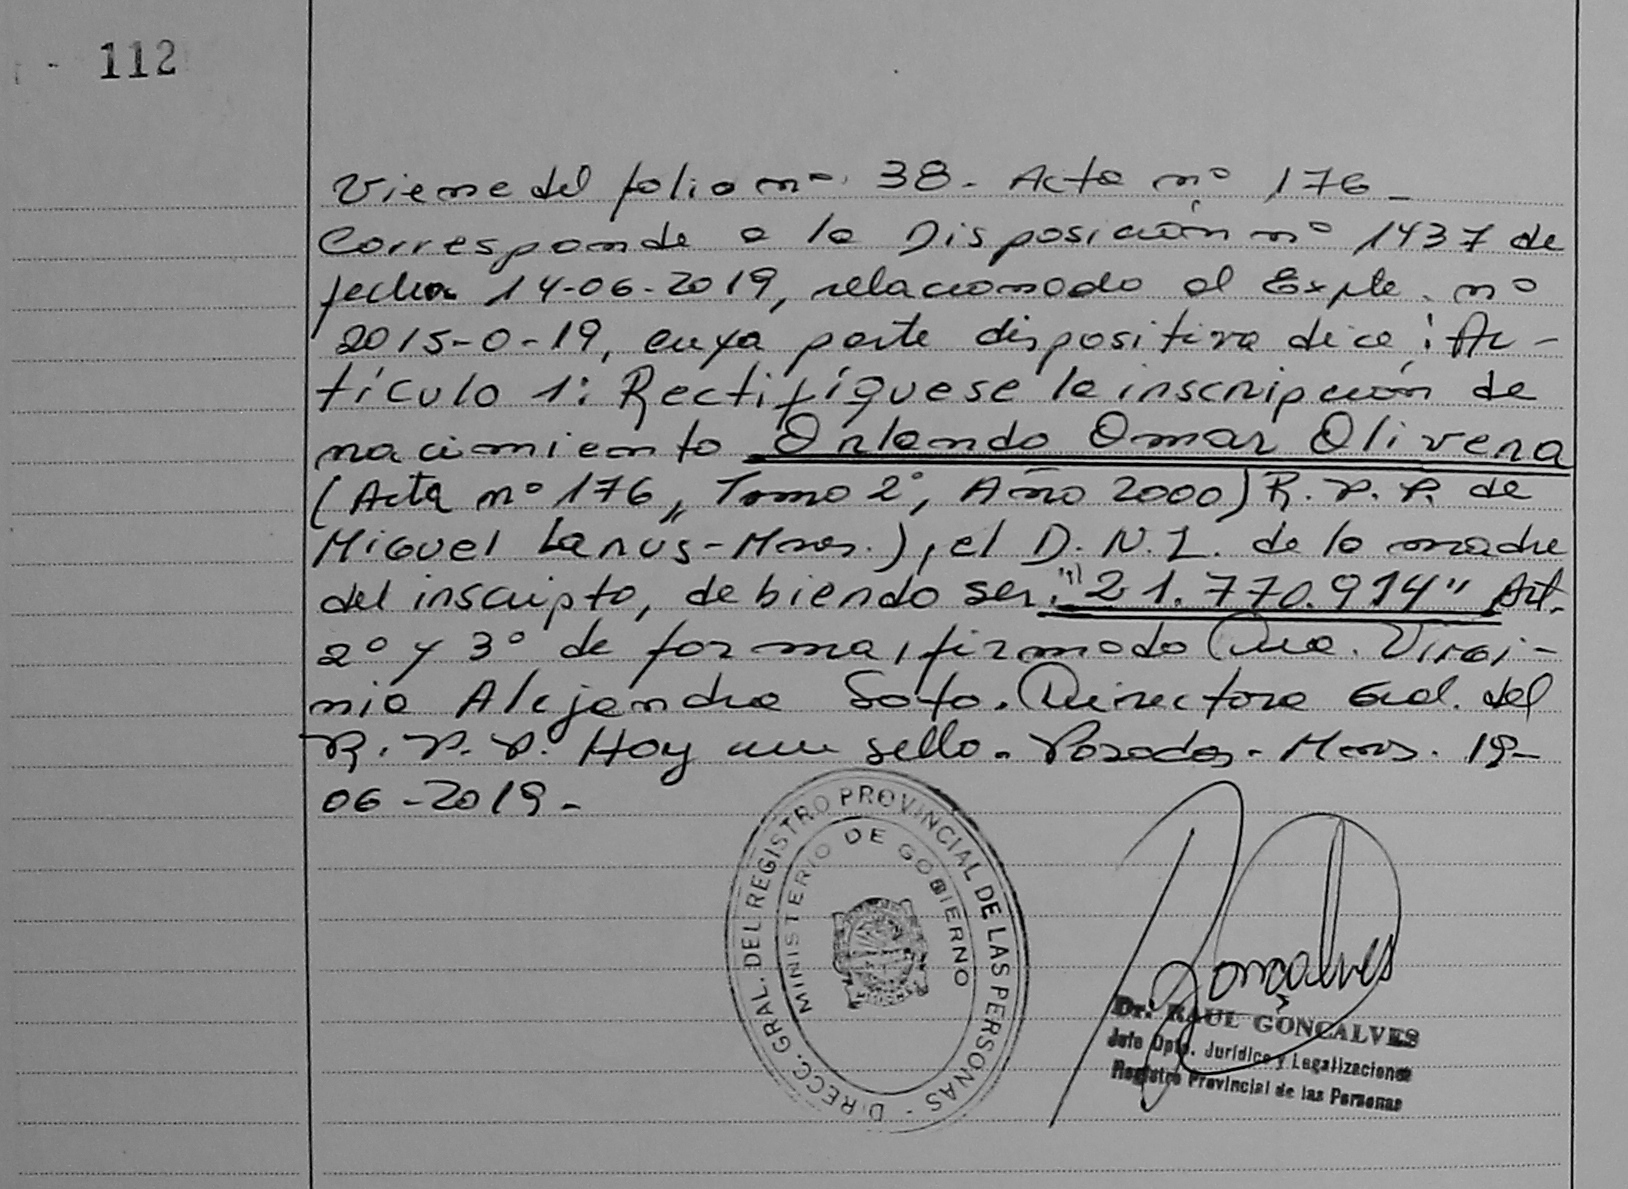 - 112
Viene del folio nº 38. Acta nº 176_
Corresponde a la Disposición nº 1437 de
fecha 14-06-2019, relacionado al Expte. nº
2015-O-19, cuya parte dispositiva dice: Ar-
tículo 1: Rectifíquese la inscripción de
nacimiento Orlando Omar Olivera
(Acta nº 176, Tomo 2º, Año 2000) R.P.P. de
Miguel Lanus-Mnes.), el D.N.I. de la madre
del inscripto, debiendo ser: "21.770.914" Art.
2º y 3º de forma, firmado Dra. Virgi-
nia Alejandra Soto. Directora Gral. del
R.P.P. Hay un sello. Posadas - Mnes. 19-
06-2019-
DIRECC. GRAL. DEL REGISTRO PROVINCIAL DE LAS PERSONAS -
MINISTERIO DE GOBIERNO
Gonçalves
Dr. RAUL GONÇALVES
Jefe Dpto. Jurídico y Legalizaciones
Registro Provincial de las Personas